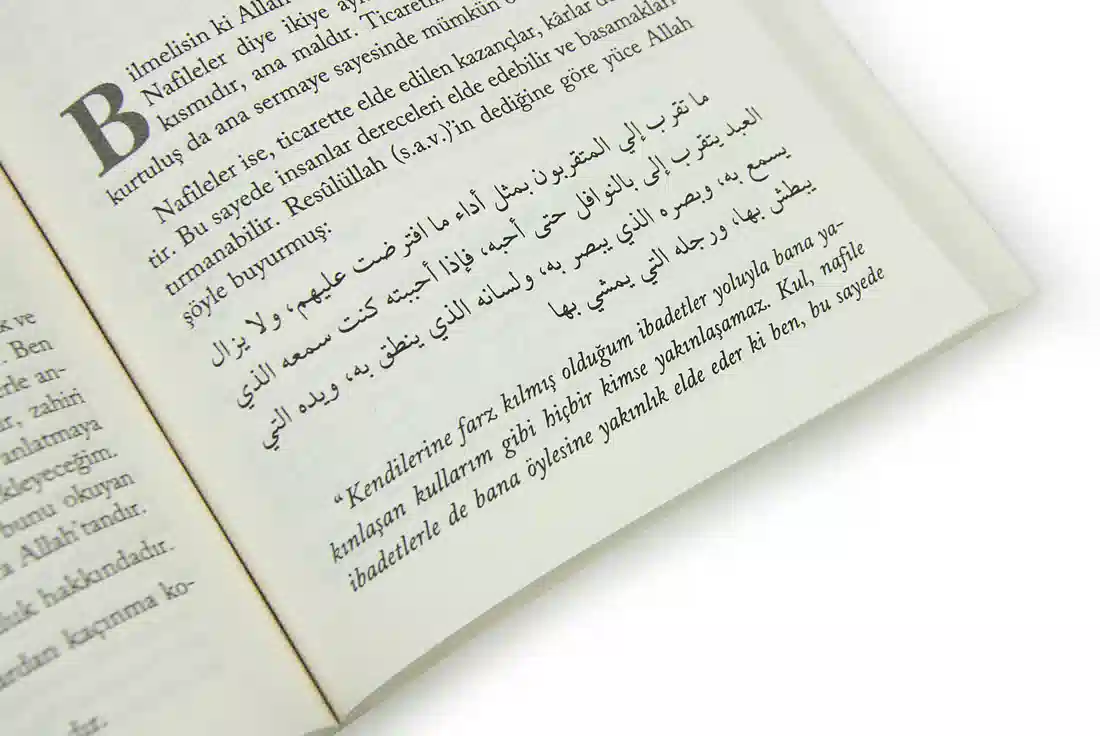 k ve
. Ben
erle an-
ır, zahiri
anlatmaya
kleyeceğim.
bunu okuyan
a Allah'tandır.
luk hakkındadır.
ardan kaçınma ko-
dır.
Bilmelisin ki Allah
Nafileler diye ikiye
kısmıdır, ana maldır.
kurtuluş da ana sermaye sayesinde mümkün
Nafileler ise, ticarette elde edilen kazançlar, kârlar
tir. Bu sayede insanlar dereceleri elde edebilir ve basamakları
tırmanabilir. Resûlüllah (s.a.v.)'in dediğine göre yüce Allah
şöyle buyurmuş:
ما تقرب إلي المتقربون بمثل أداء ما افترضت عليهم، ولا يزال
العبد يتقرب إلى بالنوافل حتى أحبه، فإذا أحببته كنت سمعه الذي
يسمع به، وبصره الذي يبصر به، ولسانه الذي ينطق به، ويده التي
يبطش بها، ورجله التي يمشي بها
“Kendilerine farz kılmış olduğum ibadetler yoluyla bana ya-
kınlaşan kullarım gibi hiçbir kimse yakınlaşamaz. Kul, nafile
ibadetlerle de bana öylesine yakınlık elde eder ki ben, bu sayede